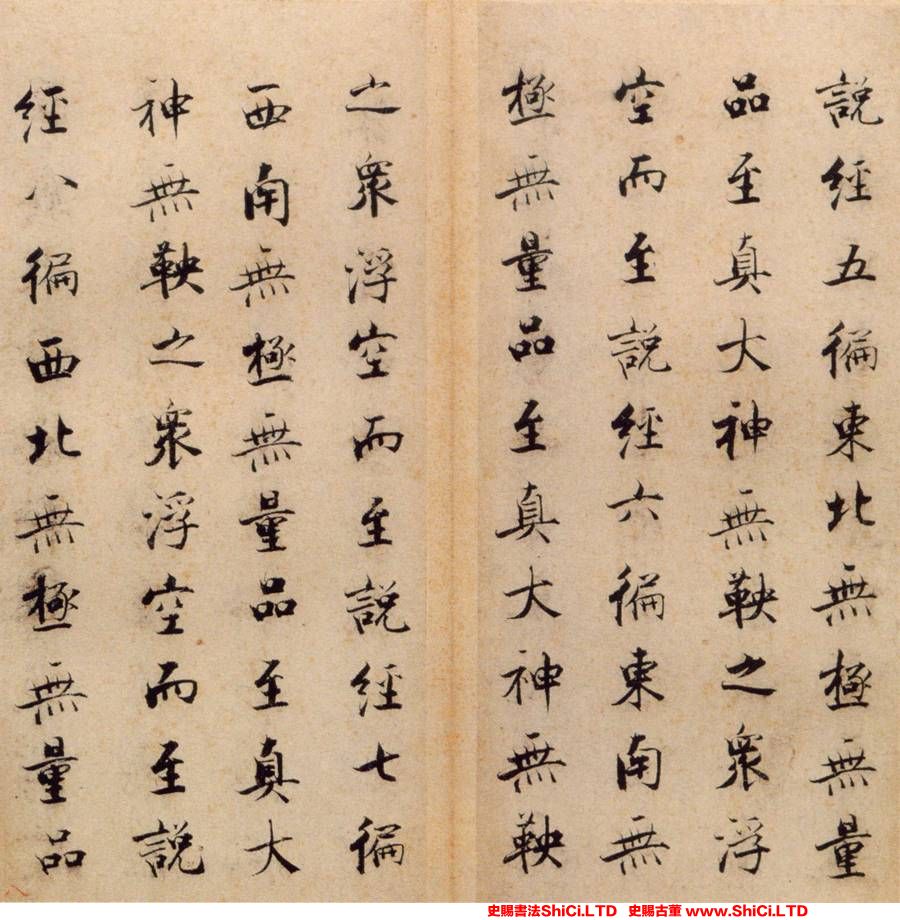 說經五徧東北無極無量
品至真大神無鞅之衆浮
空而至說經六徧東南無
極無量品至真大神無鞅
之衆浮空而至說經七徧
西南無極無量品至真大
神無鞅之衆浮空而至說
經八徧西北無極無量品
史賜書法ShiCi.LTD 史賜古董 www.ShiCi.LTD